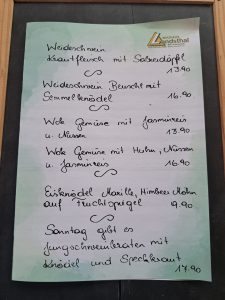 Weideschwein
Krautfleisch mit Salzerdäpfl
13.90
Weideschwein Beuschl mit
Semmelknödel 16.90
Wok Gemüse mit Jasminreis
u. Nüssen 13.90
Wok Gemüse mit Huhn, Nüssen
u. Jasminreis 16.90
Eisknödel Marille, Himbeer Mohn
auf Fruchtspiegel 9.90
Sonntag gibt es
Jungschweinsbraten mit
Knödel und Speckkraut
17.90